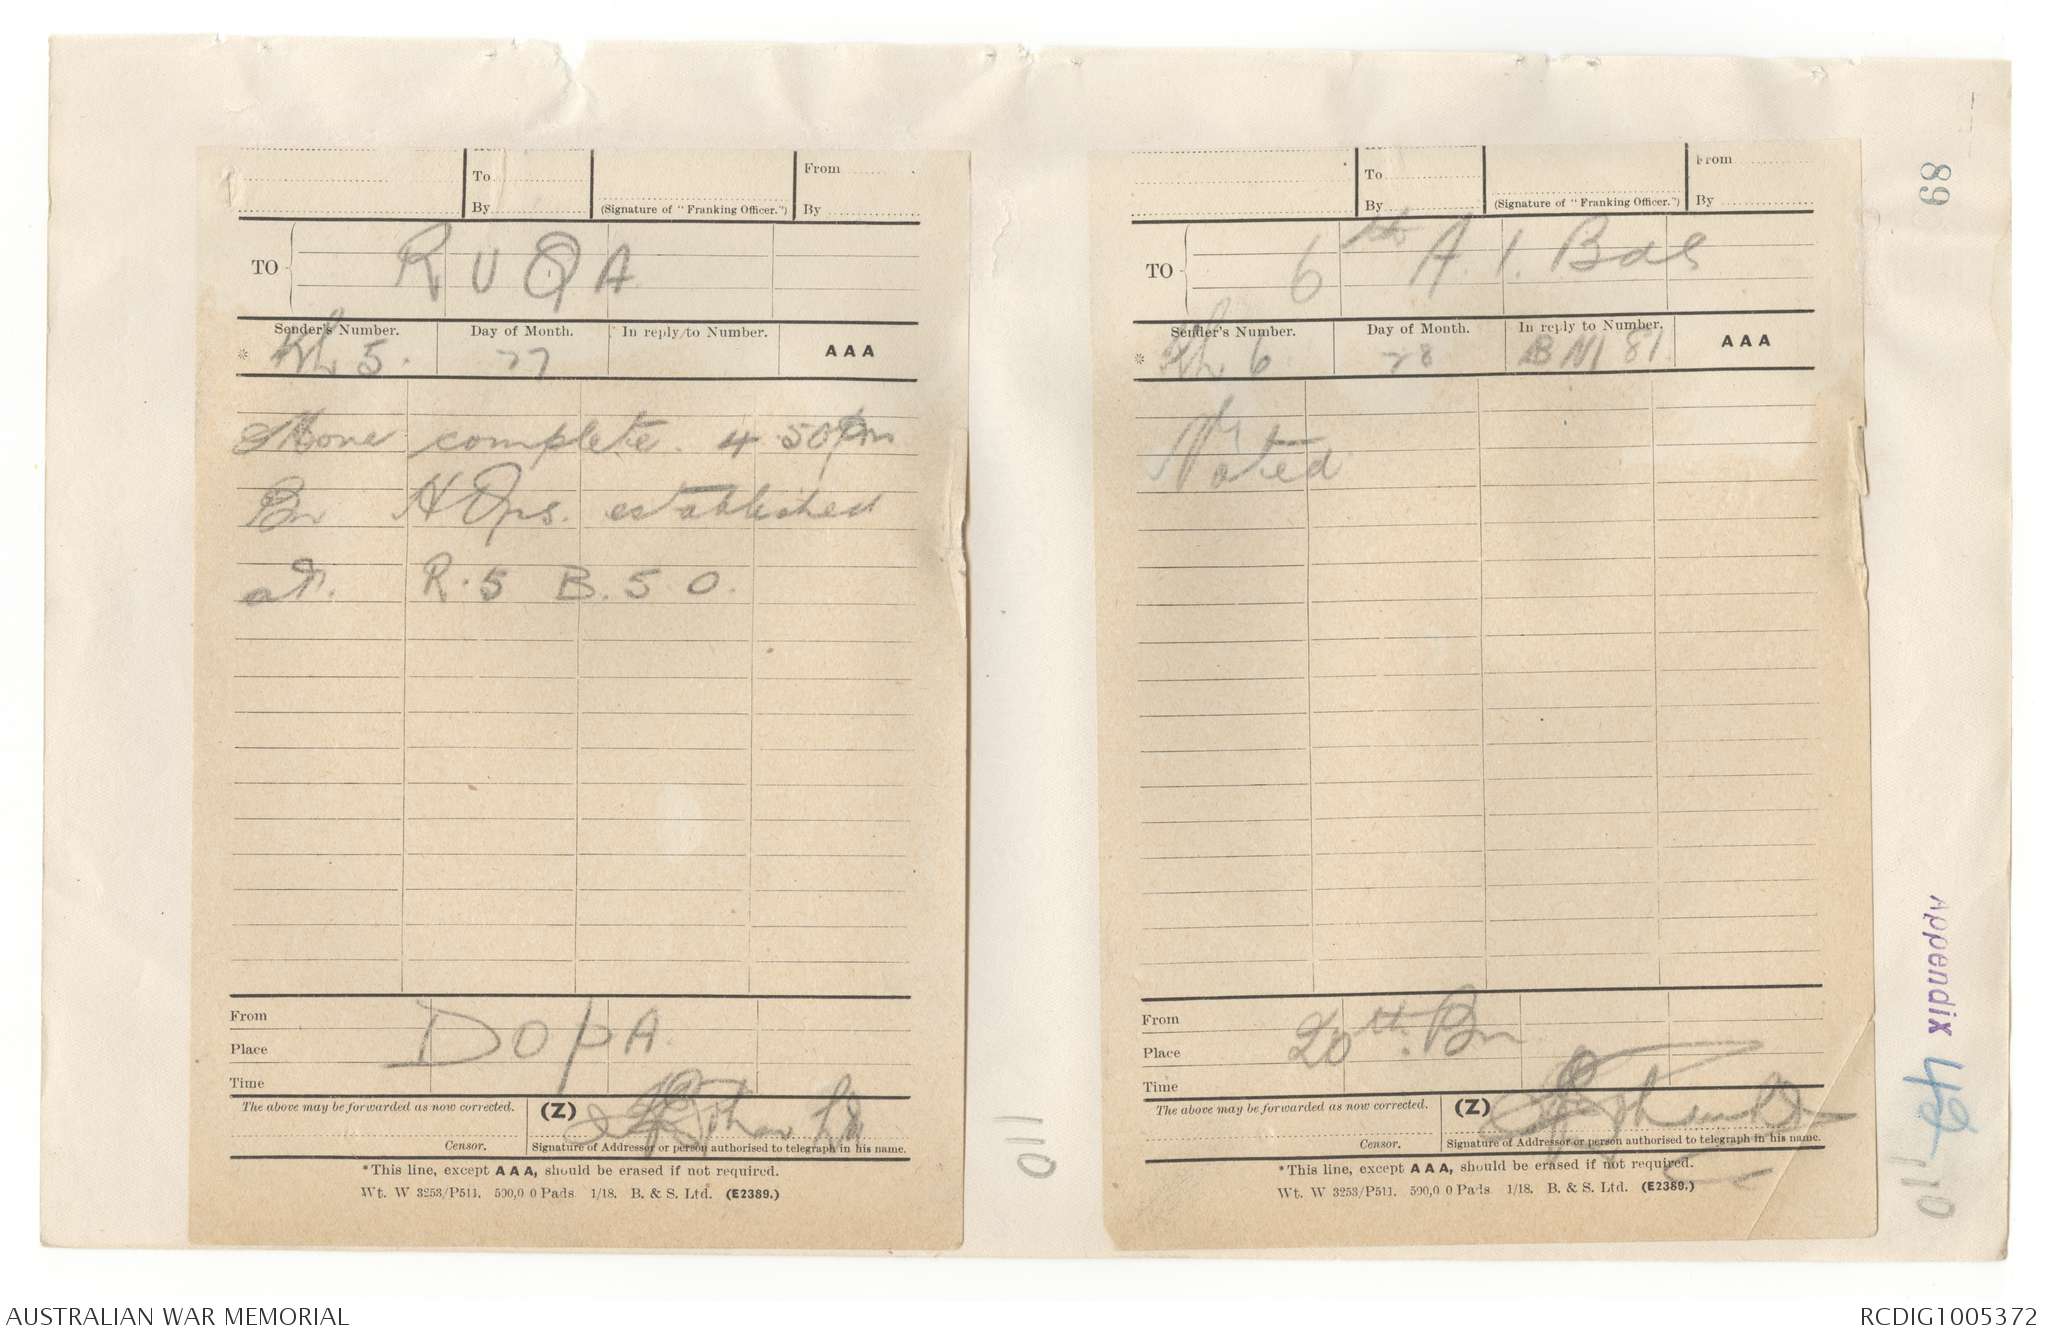 To
By
(Signature of "Franking Officer.")
From
By
TO
RUQA
Sender's Number.
Day of Month.
In reply to Number.
AAA
* Kh 5.
27
Move complete. 4 50 pm
Bn H Qrs. established
at. R.5 B.5 0.
From
Place
Time
DOPA
The above may be forwarded as now corrected.
(Z)
Censor.
Signature of Addressor or person authorised to telegraph in his name.
*This line, except AAA, should be erased if not required.
Wt. W 3253/P511. 500,0 0 Pads 1/18. B. & S. Ltd. (E2389.)
110
To
By
(Signature of "Franking Officer.")
From
By
TO
6th A. I. Bde
Sender's Number.
Day of Month.
In reply to Number.
AAA
* Kh 6
28
BM 81.
Noted
From
Place
Time
20th. Bn
The above may be forwarded as now corrected.
(Z)
Censor.
Signature of Addressor or person authorised to telegraph in his name.
*This line, except AAA, should be erased if not required.
Wt. W 3253/P511. 500,0 0 Pads 1/18. B. & S. Ltd. (E2389.)
89
Appendix 42
110
AUSTRALIAN WAR MEMORIAL
RCDIG1005372